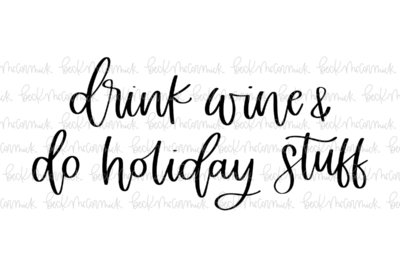 drink wine &
do holiday stuff